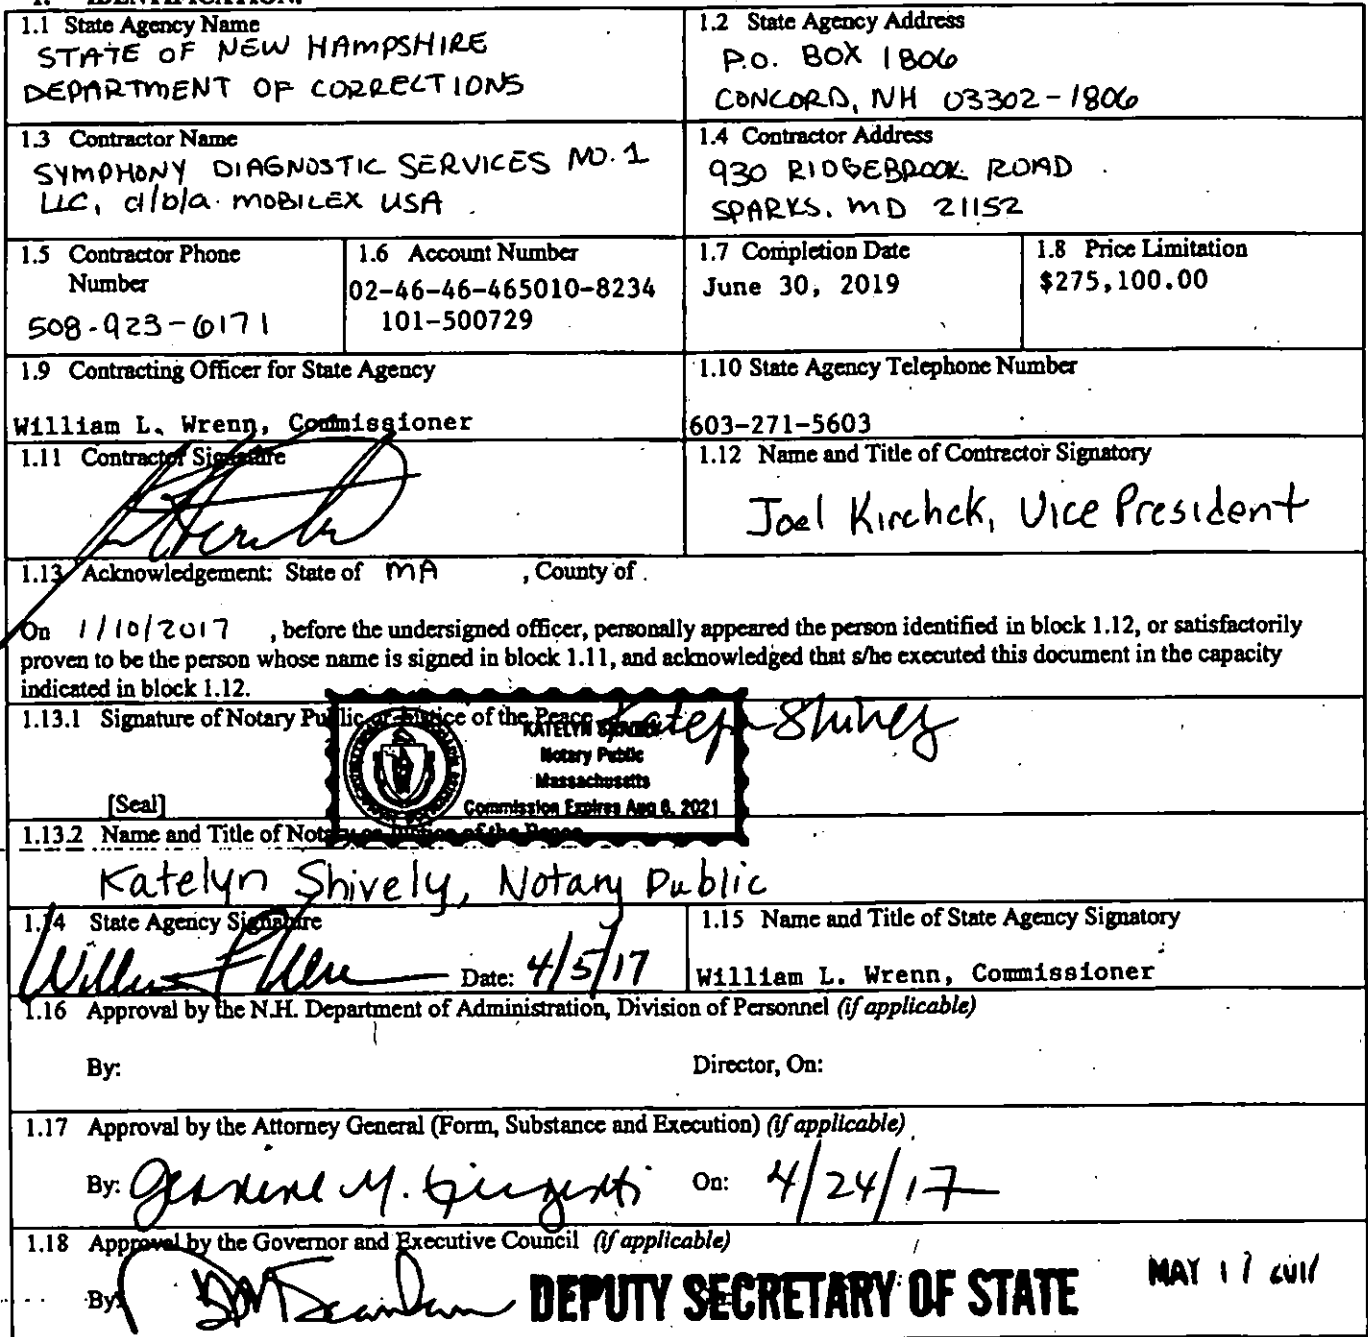 1.1 State Agency Name
STATE OF NEW HAMPSHIRE
DEPARTMENT OF CORRECTIONS
1.2 State Agency Address
P.O. BOX 1806
CONCORD, NH 03302-1806
1.3 Contractor Name
SYMPHONY DIAGNOSTIC SERVICES NO. 1
LLC, d/b/a MOBILEX USA
1.4 Contractor Address
930 RIDGEBROOK ROAD
SPARKS, MD 21152
1.5 Contractor Phone
Number
508-923-6171
1.6 Account Number
02-46-46-465010-8234
101-500729
1.7 Completion Date
June 30, 2019
1.8 Price Limitation
$275,100.00
1.9 Contracting Officer for State Agency
William L. Wrenn, Commissioner
1.10 State Agency Telephone Number
603-271-5603
1.11 Contractor Signature
1.12 Name and Title of Contractor Signatory
Joel Kirchck, Vice President
1.13 Acknowledgement: State of MA , County of
On 1/10/2017 , before the undersigned officer, personally appeared the person identified in block 1.12, or satisfactorily
proven to be the person whose name is signed in block 1.11, and acknowledged that s/he executed this document in the capacity
indicated in block 1.12.
1.13.1 Signature of Notary Public or Justice of the Peace Katelyn Shively
KATELYN
Notary Public
Massachusetts
Commission Expires Aug 6, 2021
[Seal]
1.13.2 Name and Title of Notary or Justice of the Peace
Katelyn Shively, Notary Public
1.14 State Agency Signature
Date: 4/5/17
1.15 Name and Title of State Agency Signatory
William L. Wrenn, Commissioner
1.16 Approval by the N.H. Department of Administration, Division of Personnel (if applicable)
By:
Director, On:
1.17 Approval by the Attorney General (Form, Substance and Execution) (if applicable)
By: On: 4/24/17
1.18 Approval by the Governor and Executive Council (if applicable)
By: DEPUTY SECRETARY OF STATE MAY